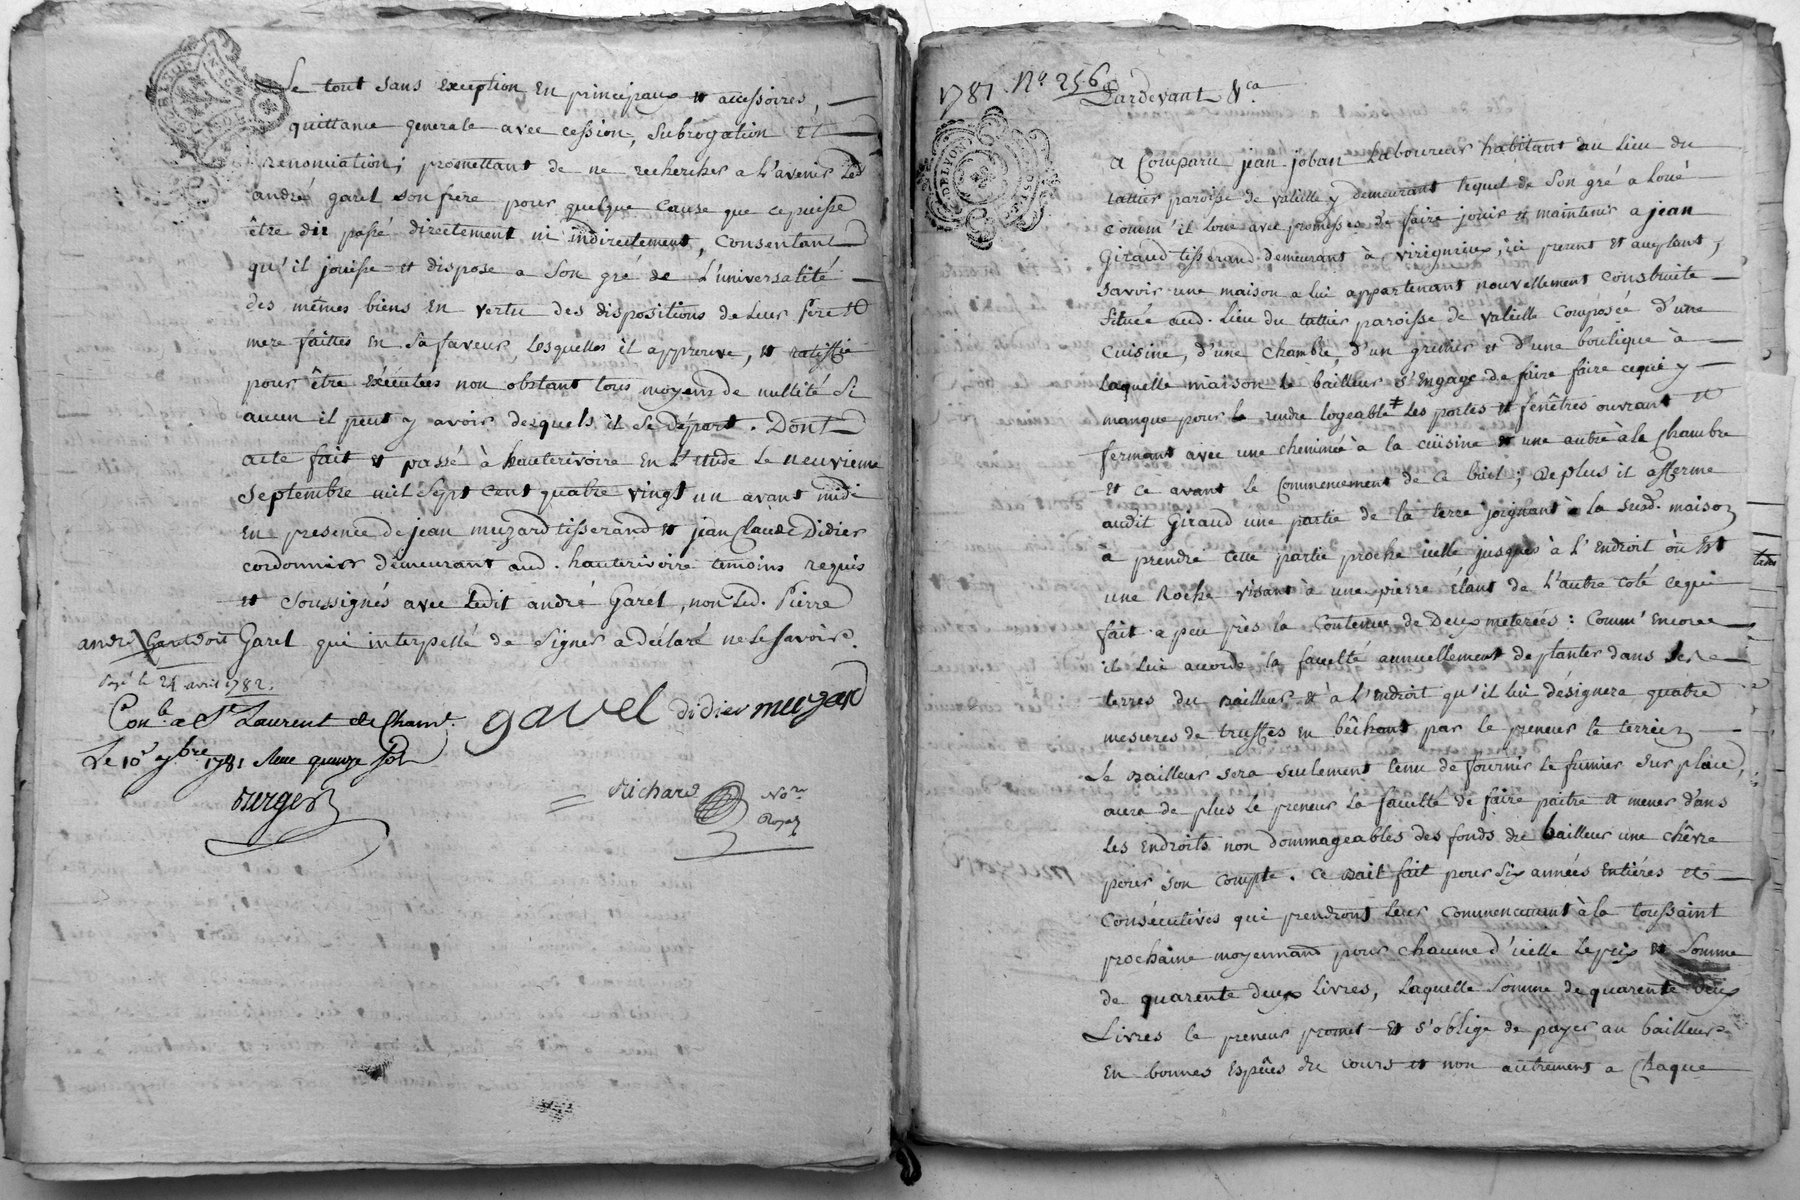 Le tout sans exception En principaux et accessoires,
quittance generale avec cession, subrogation Et
renonciation; promettant de ne rechercher a L'avenir Led
andré garel son frere pour quelque cause que ce puisse
être dit passé directement ni indirectement, Consentant
qu'il jouisse et dispose a son gré de L'universalité
des mêmes biens En vertu des dispositions de Leur pere Et
mere faittes En sa faveur, Lesquelles il approuve, et ratiffie
pour être Exécutées non obstant tous moyens de nullité si
aucun il peut y avoir desquels il se départ. Dont
acte fait et passé à hauterivoire En L'Etude Le neuvieme
septembre mil sept cent quatre vingt un avant midi
En presence de jean muzard tisserand et jean Claude Didier
cordonnier demeurant aud. hauterivoire temoins requis
et soussignés avec Ledit andré Garel, non Led. Pierre
Garel qui interpellé de signer a déclaré ne le savoir.
andré Garel doit
payé le 24 avril 1782.
Con.lé a St Laurent de Cham.t
Le 10e 7bre 1781 quinze sols
garel didier muzard
Richard Nore Royal
1781 No 256
Pardevant &ca
a Comparu jean joban Laboureur habitant au Lieu du
tattier paroisse de valeille y demeurant lequel de son gré a Loué
comm'il Loue avec promesses de faire jouir et maintenir a jean
Giraud tisserand demeurant à virigneux, ici present et acceptant,
savoir une maison a lui appartenant nouvellement construite
située aud. Lieu du tattier paroisse de valeille Composée d'une
cuisine, d'une chambre, d'un grenier et d'une boutique à
Laquelle maison le bailleur s'Engage de faire faire ce qui y
manque pour la rendre logeable ‡ Les portes et fenêtres ouvrant et
fermant avec une cheminée à la cuisine et une autre à la Chambre
Et ce avant le Commencement de ce bail; De plus il afferme
audit Giraud une partie de la terre joignant à la susd. maison
à prendre cette partie proche icelle jusques à L'Endroit où Est
une Roche visant à une pierre Étant de L'autre coté ce qui
fait a peu près la Contenue de Deux meterées: Comm'Encore
il Lui accorde la faculté annuellement de planter dans les
terres du Bailleur et à L'Endroit qu'il lui désignera quatre
mesures de truffes En bêchant par le preneur le terrein
Le Bailleur sera seulement tenu de fournir Le fumier sur place,
aura de plus Le preneur La faculté de faire paitre et mener dans
Les Endroits non dommageables des fonds du bailleur une chêvre
pour son compte. Ce Bail fait pour six années Entiéres et
Consécutives qui prendront Leur Commencement à la toussaint
prochaine moyennant pour chacune d'icelle Le prix et somme
de quarente deux Livres, Laquelle somme de quarente deux
Livres le preneur promet Et s'oblige de payer au bailleur
En bonnes Espêces du cours et non autrement a Chaque